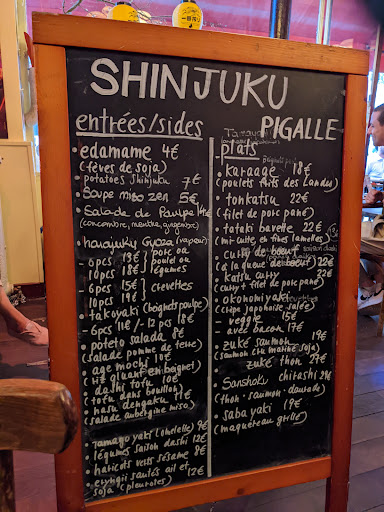 SHINJUKU
PIGALLE
entrées/sides
edamame 4€
(fèves de soja)
• potatoes Shinjuku 7€
• Soupe miso zen 5€
• Salade de
(concombre, menthe, gingembre)
• harajuku Gyoza (vapeur)
- 6 pcs 13€ } porc ou
10 pcs 18€ } poulet ou légumes
- 6 pcs 15€ } crevettes
10 pcs 19€
• takoyaki (beignets poulpe)
- 6 pcs 11€ / - 12 pcs 18€
• poteto salada 8€
(salade pomme de terre)
• age mochi 10€
(riz gluant en beignet)
• dashi tofu 10€
(tofu dans bouillon)
• nasu dengaku 11€
(salade aubergine miso)
• Tamago yaki (omelette) 9€
• légumes saison dashi 12€
• haricots verts sésame 9€
• eryngii sautés ail et
soja (pleurotes) 12€
plats
• karaage 18€
(poulets frits des Landes)
• tonkatsu 22€
(filet de porc pané)
• tataki bavette 22€
(mi-cuite en fines lamelles)
• curry de boeuf
(à la queue de boeuf) 22€
• katsu curry 22€
(curry + filet de porc pané)
• okonomiyaki
(crêpe japonaise salée)
- veggie 15€
- avec bacon 17€
• zuké saumon 19€
(saumon cru mariné soja)
zuké thon 27€
• Sanshoku chirashi 29€
(thon - saumon - daurade)
• saba yaki 19€
(maquereau grillé)